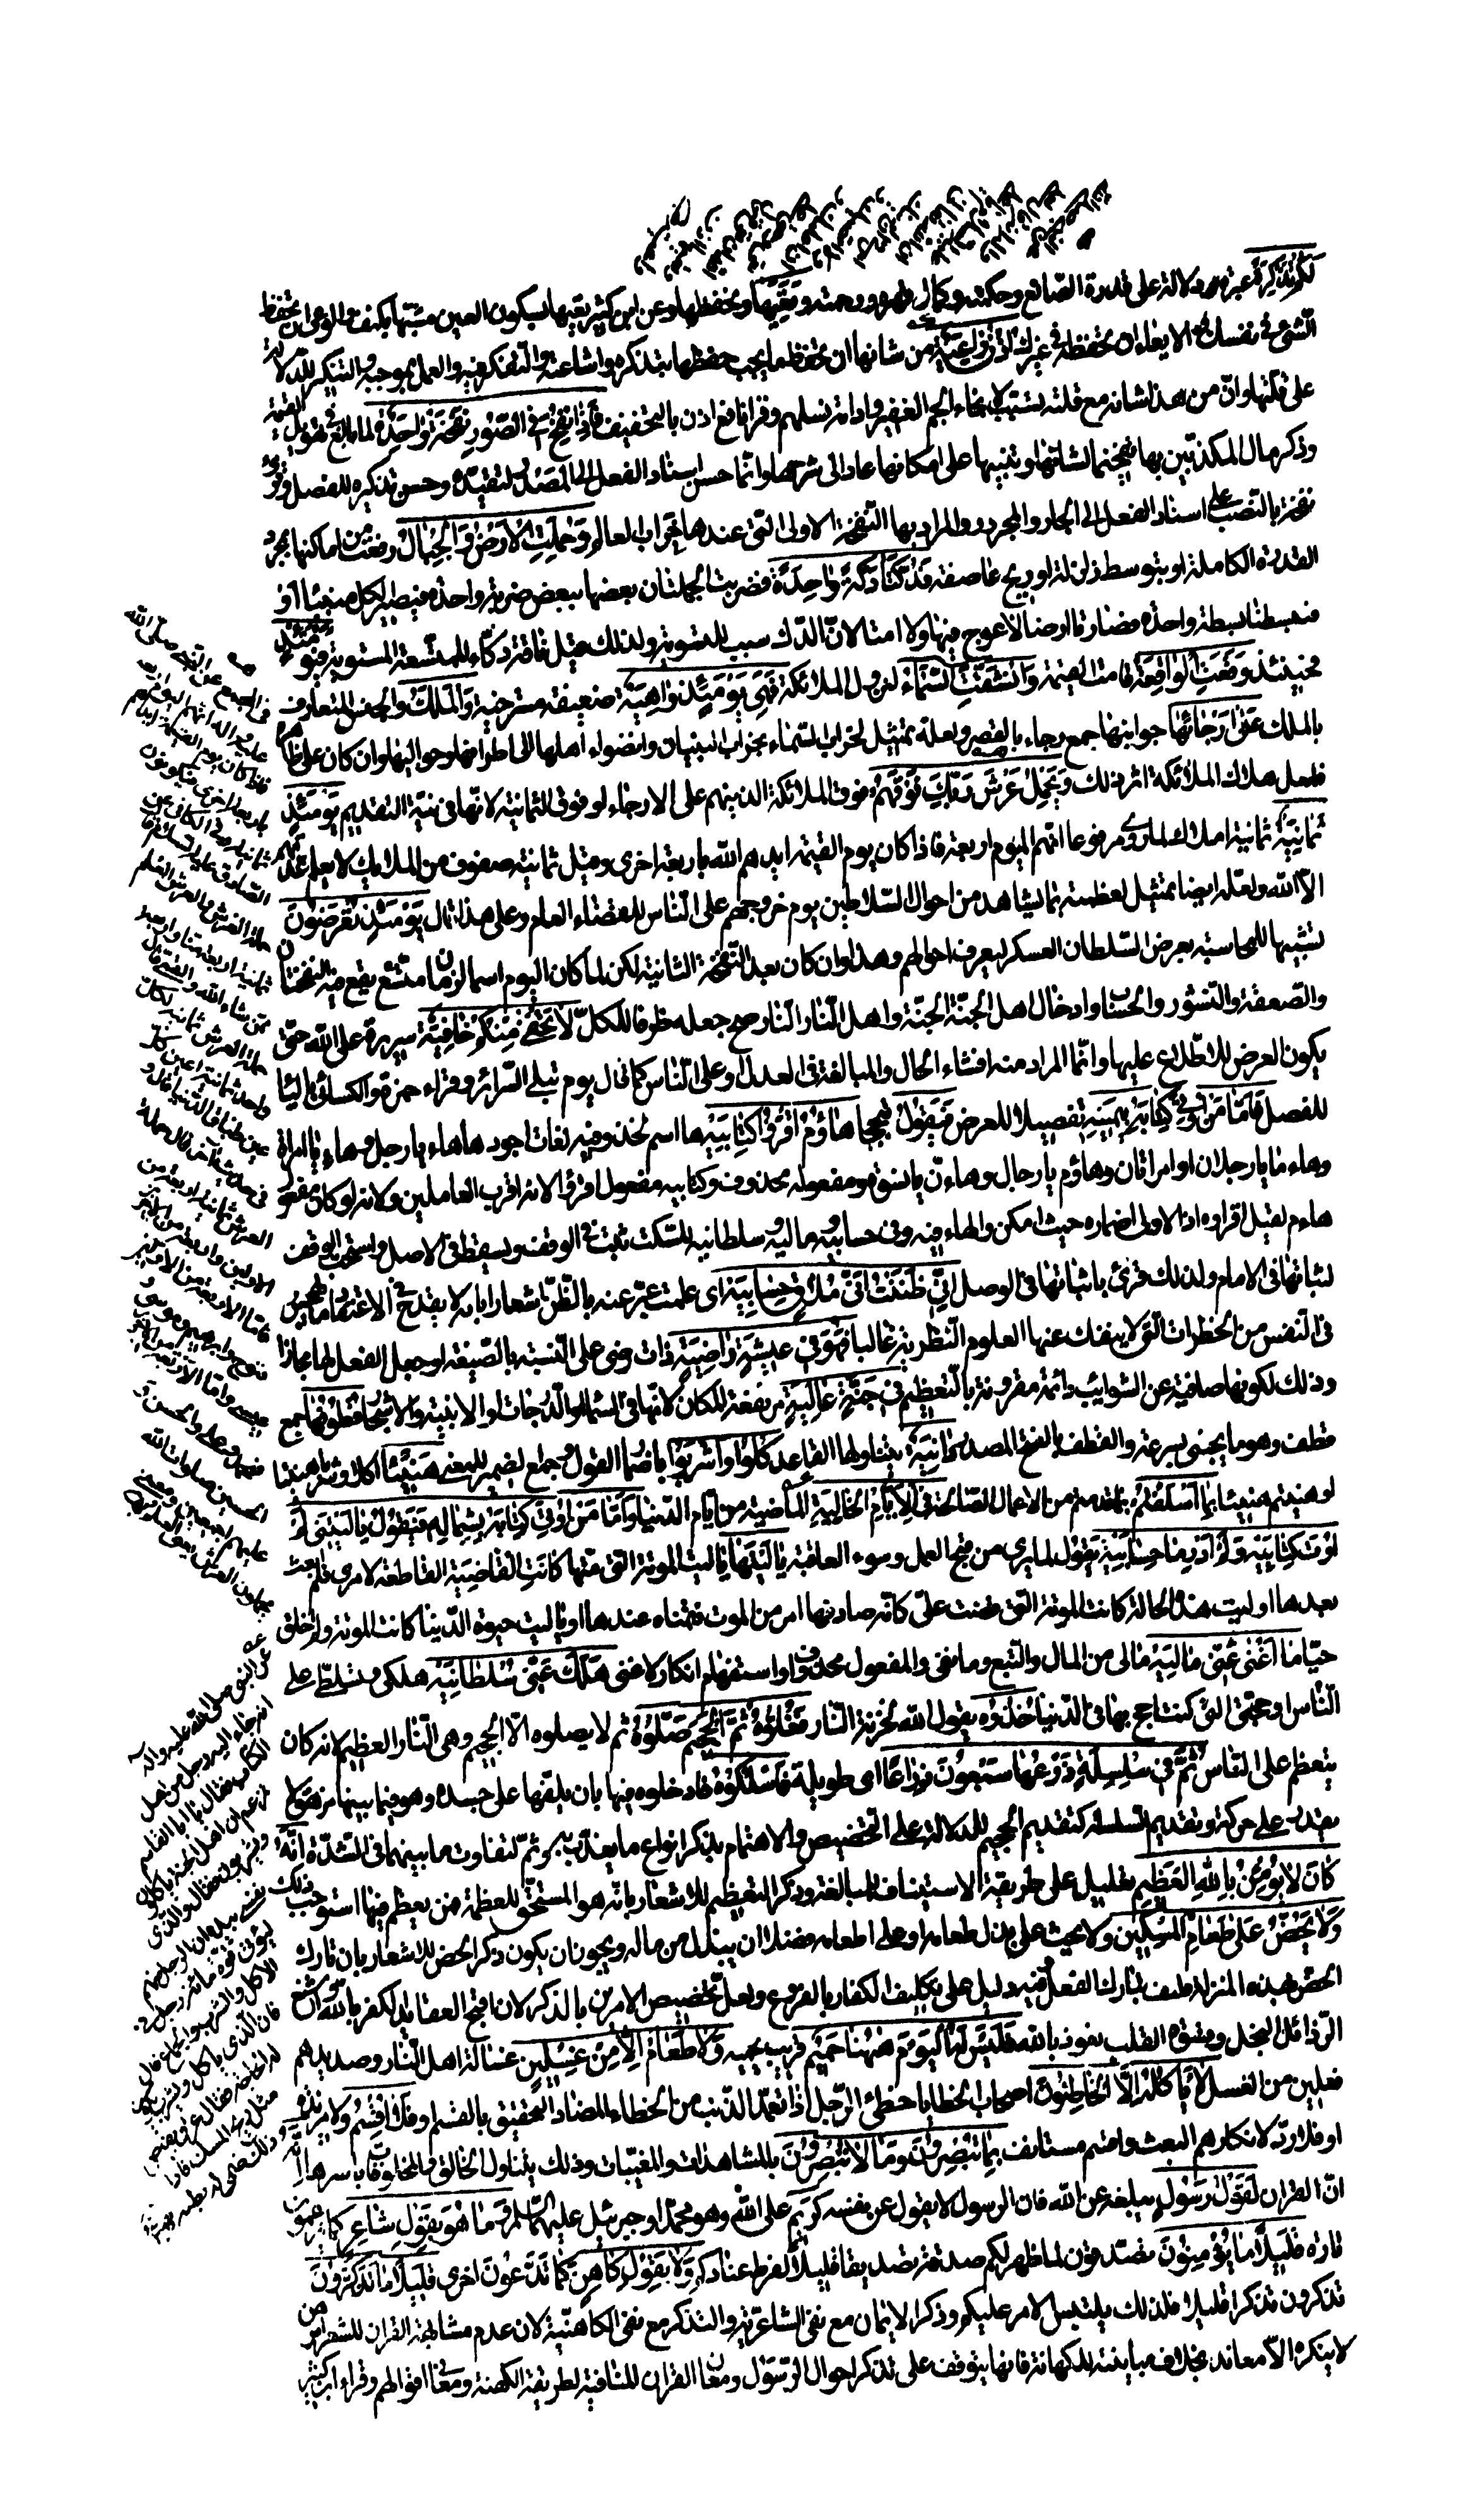 لَكُمْ تَذْكِرَةً عبرة ودلالة على قدرة الصّانع وحكمته وكمال قهره ورحمته وَتَعِيَهٰا وتحفظها وعن ابن كثير تعيها بسكون العين تشبيها بكتف والوعى ان تحفظ
الشئ فى نفسك والايعاء ان تحفظه فى غيرك اُذُنٌ وٰاعِيَةٌ من شانها ان تحفظ ما يجب حفظها بتذكره واشاعته والتفكر فيه والعمل بموجبه والتنكير للدّلالة
على قلّتها وانّ من هذا شانه مع قلته تسبّب لانجاء الجم الغفير وادامة نسلهم وقرا نافع اذن بالتخفيف فَاِذٰا نُفِخَ فِى الصُّورِ نَفْخَةٌ وٰاحِدَةٌ لما بالغ فى تهويل القيمة
وذكر مآل المكذّبين بها تفخيما لشانها وتنبيها على امكانها عاد الى شرحها وانّما حسن اسناد الفعل الى المصدر لتقيّده وحسن تذكيره للفصل وقرئ
نفخة بالنّصب على اسناد الفعل الى الجار والمجرور والمراد بها النّفخة الاولى التى عندها خراب العالم وَحُمِلَتِ الْاَرْضُ وَالْجِبٰالُ رفعت من اماكنها بمجرد
القدرة الكاملة او بتوسط زلزلة او ريح عاصفة فَدُكَّتٰا دَكَّةً وٰاحِدَةً فضربت الجملتان بعضها ببعض ضربة واحدة فيصير الكل هباء او
فبسطتا بسطة واحدة فصارتا ارضا لا عوج فيها ولا امتا لانّ الدّك سبب للتسوية ولذلك قيل ناقة دكّاء للمتّسعة المستوية فَيَوْمَئِذٍ
فحينئذ وَقَعَتِ الْوٰاقِعَةُ قامت القيمة وَانْشَقَّتِ السَّمٰاءُ لنزول الملائكة فَهِىَ يَوْمَئِذٍ وٰاهِيَةٌ ضعيفة مسترخية وَالْمَلَكُ والجنس المتعارف
بالملك عَلىٰ اَرْجٰائِهٰا جوانبها جمع رجاء بالقصر ولعله تمثيل لخراب السّماء بخراب البنيان وانضواء اهلها الى اطرافها وحواليها وان كان على ظاهره
فلعل هلاك الملائكة اثر ذلك وَيَحْمِلُ عَرْشَ رَبِّكَ فَوْقَهُمْ فوق الملائكة الذينهم على الارجاء او فوق الثمانية لانها فى نيّة التقديم يَوْمَئِذٍ
ثَمٰانِيَةٌ ثمانية املاك لما روى مرفوعا انّهم اليوم اربعة فاذا كان يوم القيمة ايدهم اللّه باربعة اخرى وقيل ثمانية صفوف من الملايك لا يعلم عدّتهم
الّا اللّه ولعلّه ايضا تمثيل لعظمته بما يشاهد من احوال السّلاطين يوم خروجهم على النّاس للقضاء العام وعلى هذا قال يَوْمَئِذٍ تُعْرَضُونَ
تشبيها للمحاسبة بعرض السّلطان العسكر ليعرف احوالهم وهذا وان كان بعد النّفخة الثانية لكن لما كان اليوم اسما لزمان متسّع يقع فيه النفختان
والصّعقة والنّشور والحساب وادخال اهل الجنّة الجنّة واهل النّار النّار صح جعله ظرفا للكلّ لٰا تَخْفىٰ مِنْكُمْ خٰافِيَةٌ سريرة على اللّه حتى
يكون العرض للاطّلاع عليها وانّما المراد منه افشاء الحال والمبالغة فى العدل او على النّاس كما قال يوم تبلى السّرائر وقراء حمزة والكسائى بالياء
للفصل فَاَمّٰا مَنْ اُوتِىَ كِتٰابَهُ بِيَمِينِهِ تفصيلا للعرض فَيَقُولُ تبجحا هٰاؤُمُ اقْرَؤُا كِتٰابِيَهْ ها اسم لخذ وفيه لغات اجودها هاء يا رجل وهاء يا امراة
وهاءما يا رجلان او امراتان وهاؤم يا رجال وهاءنّ يا نسوة ومفعوله محذوف وكتابيه مفعول اقرؤا لانه اقرب العاملين ولانه لو كان مفعول
هاءم لقيل اقراوه اذ الاولى اضماره حيث امكن والهاء فيه وفى حسابيه وماليه وسلطانيه للسّكت تثبت فى الوقف وتسقط فى الاصل واستحب الوقف
لثباتها فى الامام ولذلك قرئ باثباتها فى الوصل اِنِّى ظَنَنْتُ اَنِّى مُلٰاقٍ حِسٰابِيَهْ اى علمت عبّر عنه بالظّنّ اشعارا بانه لا يقدح فى الاعتقاد ما يهجس
فى النّفس من الخطرات الّتى لا ينفك عنها العلوم النّظرية غالبا فَهُوَ فِى عِيشَةٍ رٰاضِيَةٍ ذات رضى على النّسبة بالصّيغة او جعل الفعل لها مجازا
وذلك لكونها صافية عن الشوايب دائمة مقرونة بالتعظيم فِى جَنَّةٍ عٰالِيَةٍ مرتفعة المكان لانّها فى السّماء او الدّرجات او الابنية والاشجار قُطُوفُهٰا جمع
قطف وهو ما يجنى بسرعة والقطف بالفتح المصدر دٰانِيَةٌ يتناولها القاعد كُلُوا وَاشْرَبُوا باضمار القول وجمع الضمير للمعنى هَنِيئًا اكلا وشربا هنيئا
او هنيتم هنيئا بِمٰا اَسْلَفْتُمْ بما قدمتم من الاعمال الصّالحة فِى الْاَيّٰامِ الْخٰالِيَةِ الماضية من ايّام الدّنيا وَاَمّٰا مَنْ اُوتِىَ كِتٰابَهُ بِشِمٰالِهِ فَيَقُولُ يٰا لَيْتَنِى لَمْ
اُوتَ كِتٰابِيَهْ وَلَمْ اَدْرِ مٰا حِسٰابِيَهْ يقول لما يرى من قبح العمل وسوء العاقبة يٰا لَيْتَهٰا يا ليت الموتة التى متّها كٰانَتِ الْقٰاضِيَةَ القاطعة لامرى فلم ابعث
بعدها او ليت هذه الحالة كانت الموتة التى قضت علىّ كانّه صادفها امر من الموت فتمناه عندها او يا ليت حيوة الدّنيا كانت الموتة ولم اخلق
حيّا مٰا اَغْنىٰ عَنِّى مٰالِيَهْ مالى من المال والتّبع وما نفى والمفعول محذوف او استفهام انكار لاغنى هَلَكَ عَنِّى سُلْطٰانِيَهْ هلكى وتسلطى على
النّاس او حجّتى التى كنت احتج بها فى الدّنيا خُذُوهُ يقول اللّه لخزنة النّار فَغُلُّوهُ ثُمَّ الْجَحِيمَ صَلُّوهُ ثم لا يصلوه الّا الجحيم وهى النّار العظيم لانه كان
يتعظم على النّاس ثُمَّ فِى سِلْسِلَةٍ ذَرْعُهٰا سَبْعُونَ ذِرٰاعًا اى طويلة فَاسْلُكُوهُ فادخلوه فيها بان يلقّها على جسده وهو فيما بينها مرهق لا
يقدر على حركة وتقديم السلسلة كتقديم الجحيم للدّلالة على التخصيص والاهتمام بذكر انواع ما يعذّب به وثمّ لتفاوت ما بينهما فى الشّدّة اِنَّهُ
كٰانَ لٰا يُؤْمِنُ بِاللّٰهِ الْعَظِيمِ تعليل على طريقة الاستيناف للمبالغة وذكر العظيم للاشعار بانّه هو المستحقّ للعظمة فمن يعظم فيها استوجب ذلك
وَلٰا يَحُضُّ عَلىٰ طَعٰامِ الْمِسْكِينِ ولا يحث على بذل طعامه او على اطعامه فضلا ان يبذل من ماله ويجوز ان يكون ذكر الحض للاشعار بان تارك
الحضّ بهذه المنزلة فكيف بتارك الفعل وفيه دليل على تكليف الكفار بالفروع ولعلّ تخصيص الامرين بالذكر لان اقبح العقايد الكفر باللّه واشنع
الرّذائل البخل وقسوة القلب نعوذ باللّه فَلَيْسَ لَهُ الْيَوْمَ هٰهُنٰا حَمِيمٌ قريب يحميه وَلٰا طَعٰامٌ اِلّٰا مِنْ غِسْلِينٍ غسالة اهل النّار وصديدهم
فعلين من الغسل لٰا يَاْكُلُهُ اِلَّا الْخٰاطِئُونَ اصحاب الخطايا خطئ الرّجل اذا تعمّد الذّنب من الخطاء المضادّ للتحقيق بالقسم او فَلٰا اُقْسِمُ ولا مزيدة
او فلا ردّ لانكارهم البعث واقسم مستانف بِمٰا تُبْصِرُونَ وَمٰا لٰا تُبْصِرُونَ بالمشاهدات والمغيّبات وذلك يتناول الخالق والمخلوقات باسرها اِنَّهُ
انّ القران لَقَوْلُ رَسُولٍ يبلغه عن اللّه فان الرسول لا يقول عن نفسه كَرِيمٍ على اللّه وهو محمّد او جبرئيل عليهما السّلام وَمٰا هُوَ بِقَوْلِ شٰاعِرٍ كما تزعمون
تارة قَلِيلًا مٰا تُؤْمِنُونَ تصدّقون لما ظهر لكم صدقه تصديقا قليلا لفرط عنادكم وَلٰا بِقَوْلِ كٰاهِنٍ كما تدّعون اخرى قَلِيلًا مٰا تَذَكَّرُونَ
تذكرون تذكرا قليلا فلذلك يلتبس الامر عليكم وذكر الايمان مع نفى الشاعريّة والتذكر مع نفى الكاهنيّة لان عدم مشابهة القران للشعر امر
لا ينكره الا معاند بخلاف مباينته للكهانة فانها يتوقف على تذكر احوال الرّسول ومعانى القران المنافية لطريقة الكهنة ومعانى اقوالهم وقراء ابن كثير
فى المجمع عن النّبى صلى اللّه
عليه واله انهم اليوم اربعة
فاذا كان يوم القيمة ايدهم
باربعة اخرى فيكونون
ثمانية وفى الكافى عن
الصّادق عليه السّلم قال
حملة العرش والعرش العلم
ثمانية اربعة منا واربعة
ممّن شاء اللّه
حملة العرش ثمانية لكل
واحد ثمانية اعين كل
عين طباق الدّنيا
فى حديث اخر قال حملة
العرش ثمانية اربعة من
الاولين واربعة من الاخرين
فاما الاربعة من الاولين
فنوح وابراهيم وموسى و
عيسى واما الاربعة من الاخرين
فمحمد وعلى والحسن و
الحسين صلوات اللّه
عليهم اجمعين ومعنى
يحملون العرش يعنى العلم
عن النّبى صلى اللّه عليه واله
انه جاء اليه رجل من اهل
الكتاب فقال يا ابا القاسم
تزعم ان اهل الجنة ياكلون
ويشربون فقال والذى
نفسى بيده ان الرجل منهم
ليؤتى قوة مائة رجل فى
الاكل والشرب والجماع قال
فان الذى ياكل ويشرب يكون
له الحاجة فقال عرق يفيض
مثل ريح المسك فاذا
كان ذلك ضمر له بطنه